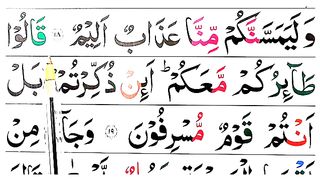 وَلَيَمَسَّنَّكُمْ مِّنَّا عَذَابٌ اَلِيْمٌ ۝۱۸ قَالُوْا
طَآئِرُكُمْ مَّعَكُمْ ؕ اَئِنْ ذُكِّرْتُمْ ؕ بَلْ
اَنْتُمْ قَوْمٌ مُّسْرِفُوْنَ ۝۱۹ وَجَآءَ مِنْ